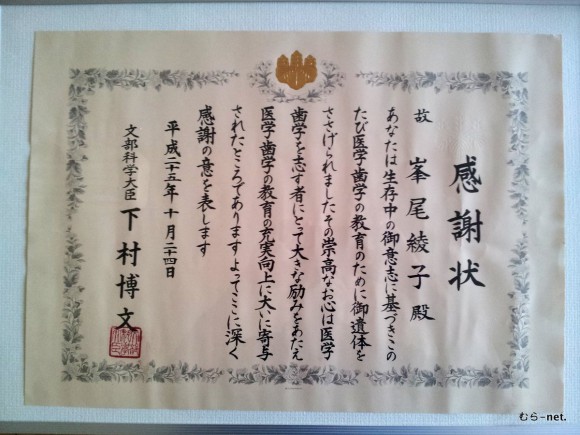 感謝状
故 峯尾綾子殿
あなたは生存中の御意志に基づきこの
たび医学歯学の教育のために御遺体を
ささげられましたその崇高なお心は医学
歯学を志す者にとって大きな励みをあたえ
医学歯学の教育の充実向上に大いに寄与
されたところでありますよってここに深く
感謝の意を表します
平成二十五年十月二十四日
文部科学大臣 下村博文
むらーnet.